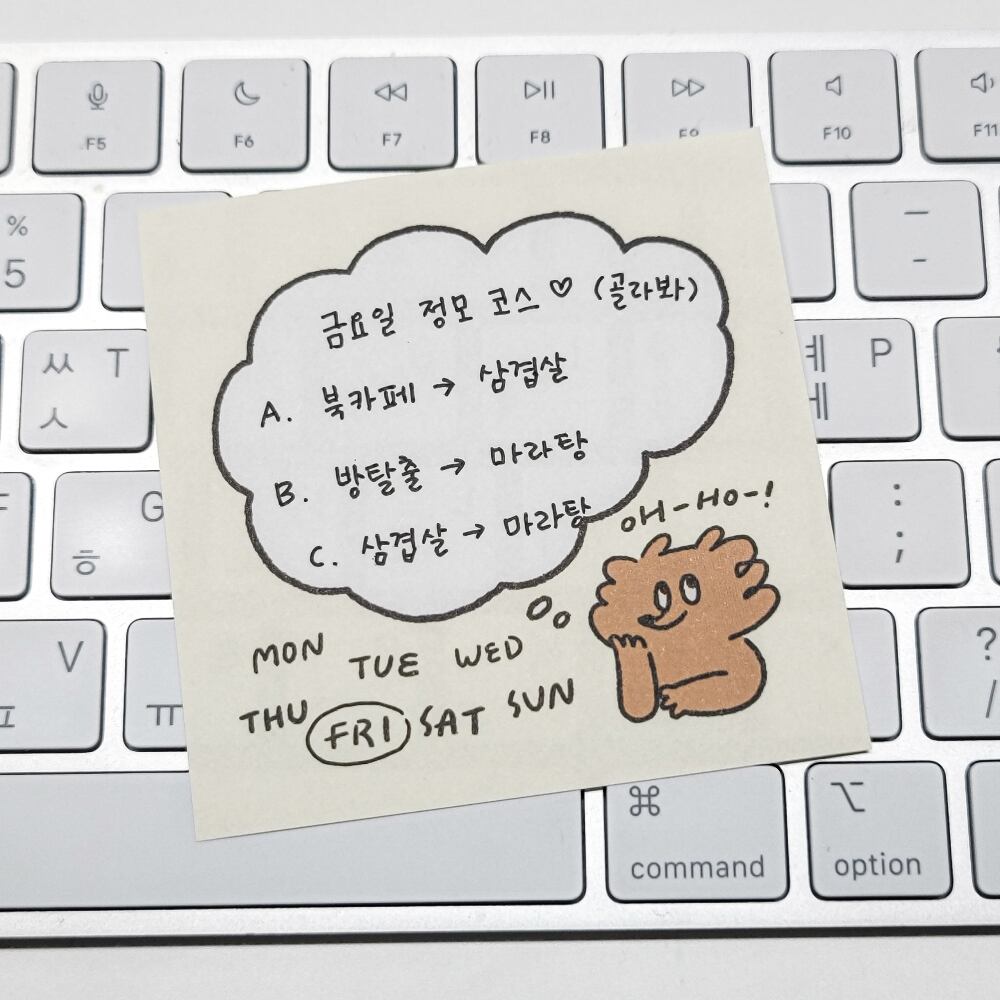 F5 F6 F7 F8 F9 F10 F11
% 5 - -
ㅆ T ㅅ ㅖ P ㅔ
F G ㅎ : ;
V ㅍ ㅠ ? /
금요일 정모 코스♡ (골라봐)
A. 북카페 → 삼겹살
B. 방탈출 → 마라탕
C. 삼겹살 → 마라탕
OH-HO-!
MON TUE WED
THU FRI SAT SUN
command option